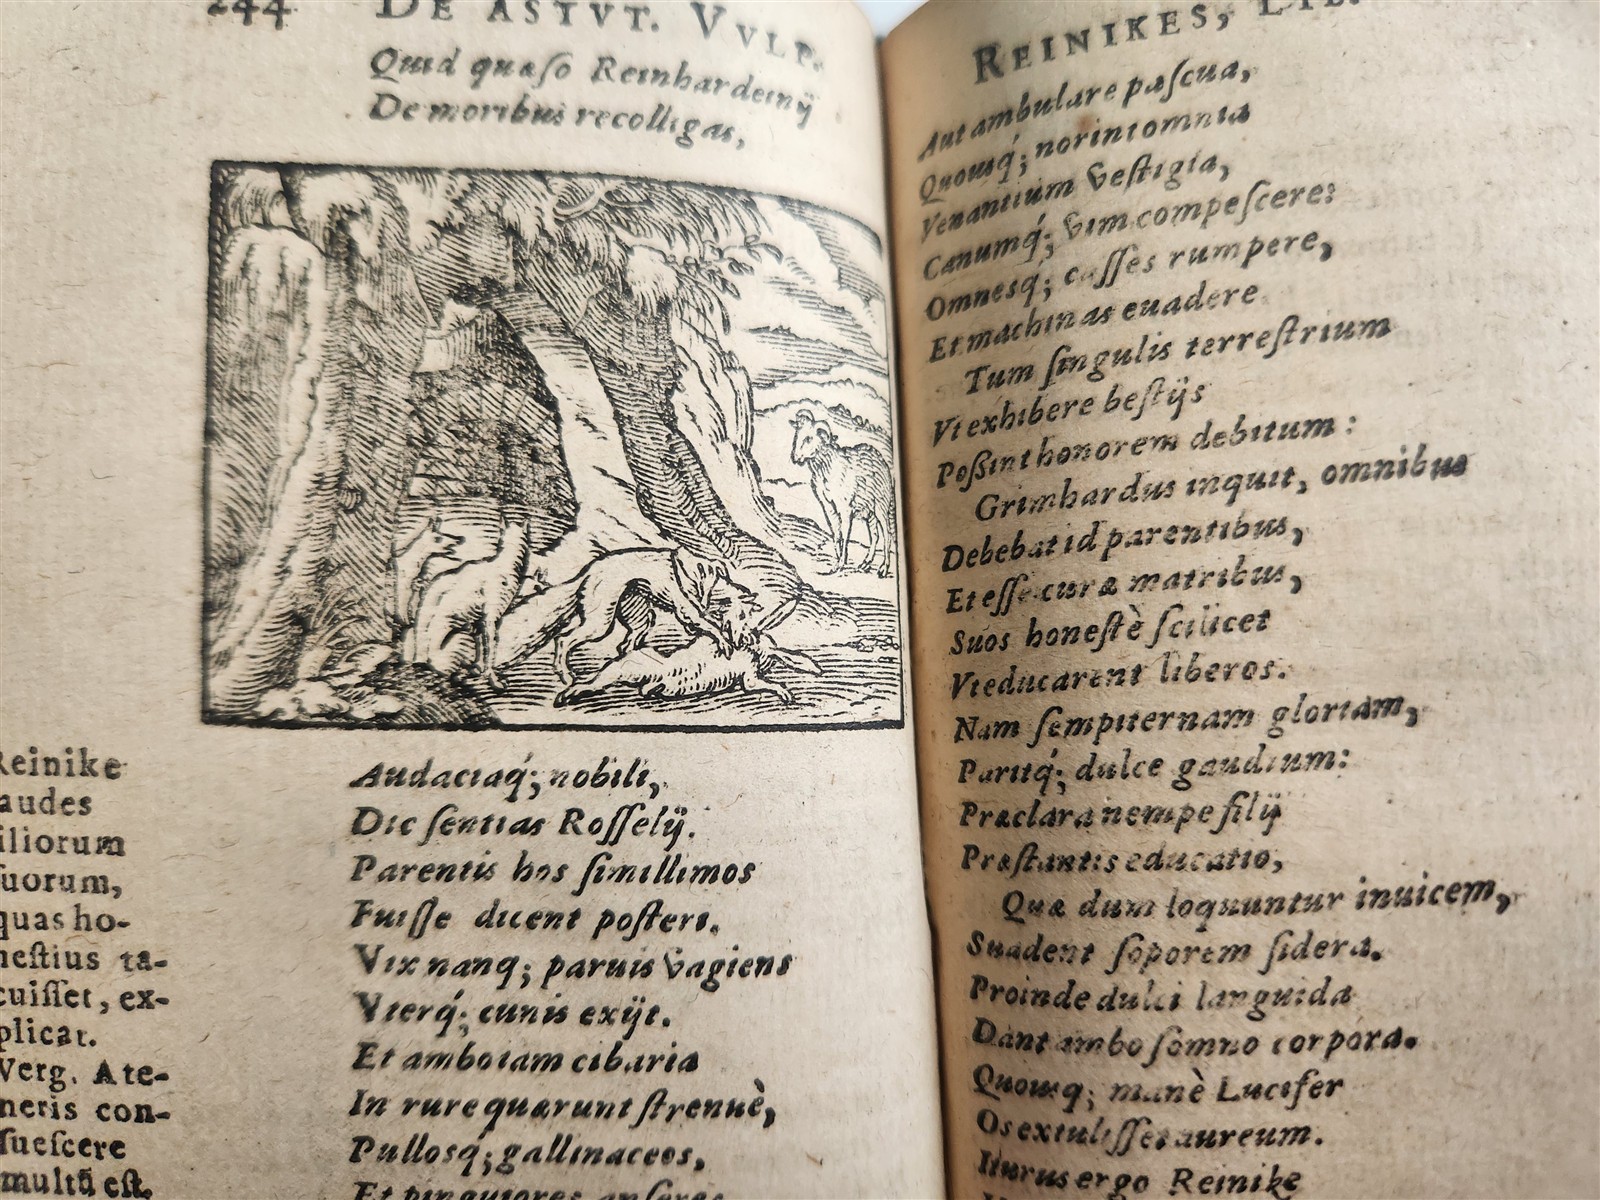 244 DE ASTVT. VVLP.
Quid quæſo Reinhardeinÿ
De moribus recolligas,
Audaciaq́; nobili,
Dic ſentias Roſſelÿ.
Parentis hos ſimillimos
Fuiſſe dicent poſteri.
Vix nanq; paruis vagiens
Vterq́; cunis exÿt.
Et ambo iam cibaria
In rure quærunt ſtrenuè,
Pullosq́; gallinaceos,
Et pinguiores anſeres
Reinike
laudes
filiorum
ſuorum,
quas ho-
neſtius ta-
cuiſſet, ex-
plicat.
Verg. A te-
neris con-
ſueſcere
multũ eſt.
REINIKES, LIB.
Aut ambulare paſcua,
Quouſq́; norint omnia
Venantium veſtigia,
Canumq́; vim compeſcere:
Omnesq́; caſſes rumpere,
Et machinas euadere
Tum ſingulis terreſtrium
Vt exhibere beſtÿs
Poßint honorem debitum:
Grimhardus inquit, omnibus
Debebat id parentibus,
Et eſſe curæ matribus,
Suos honeſtè ſcilicet
Vt educarent liberos.
Nam ſempiternam gloriam,
Paritq́; dulce gaudium:
Præclara nempe filÿ
Præſtantis educatio,
Quæ dum loquuntur inuicem,
Suadent ſoporem ſidera.
Proinde dulci languida
Dant ambo ſomno corpora.
Quouſq; manè Lucifer
Os extuliſſet aureum.
Iturus ergo Reinike